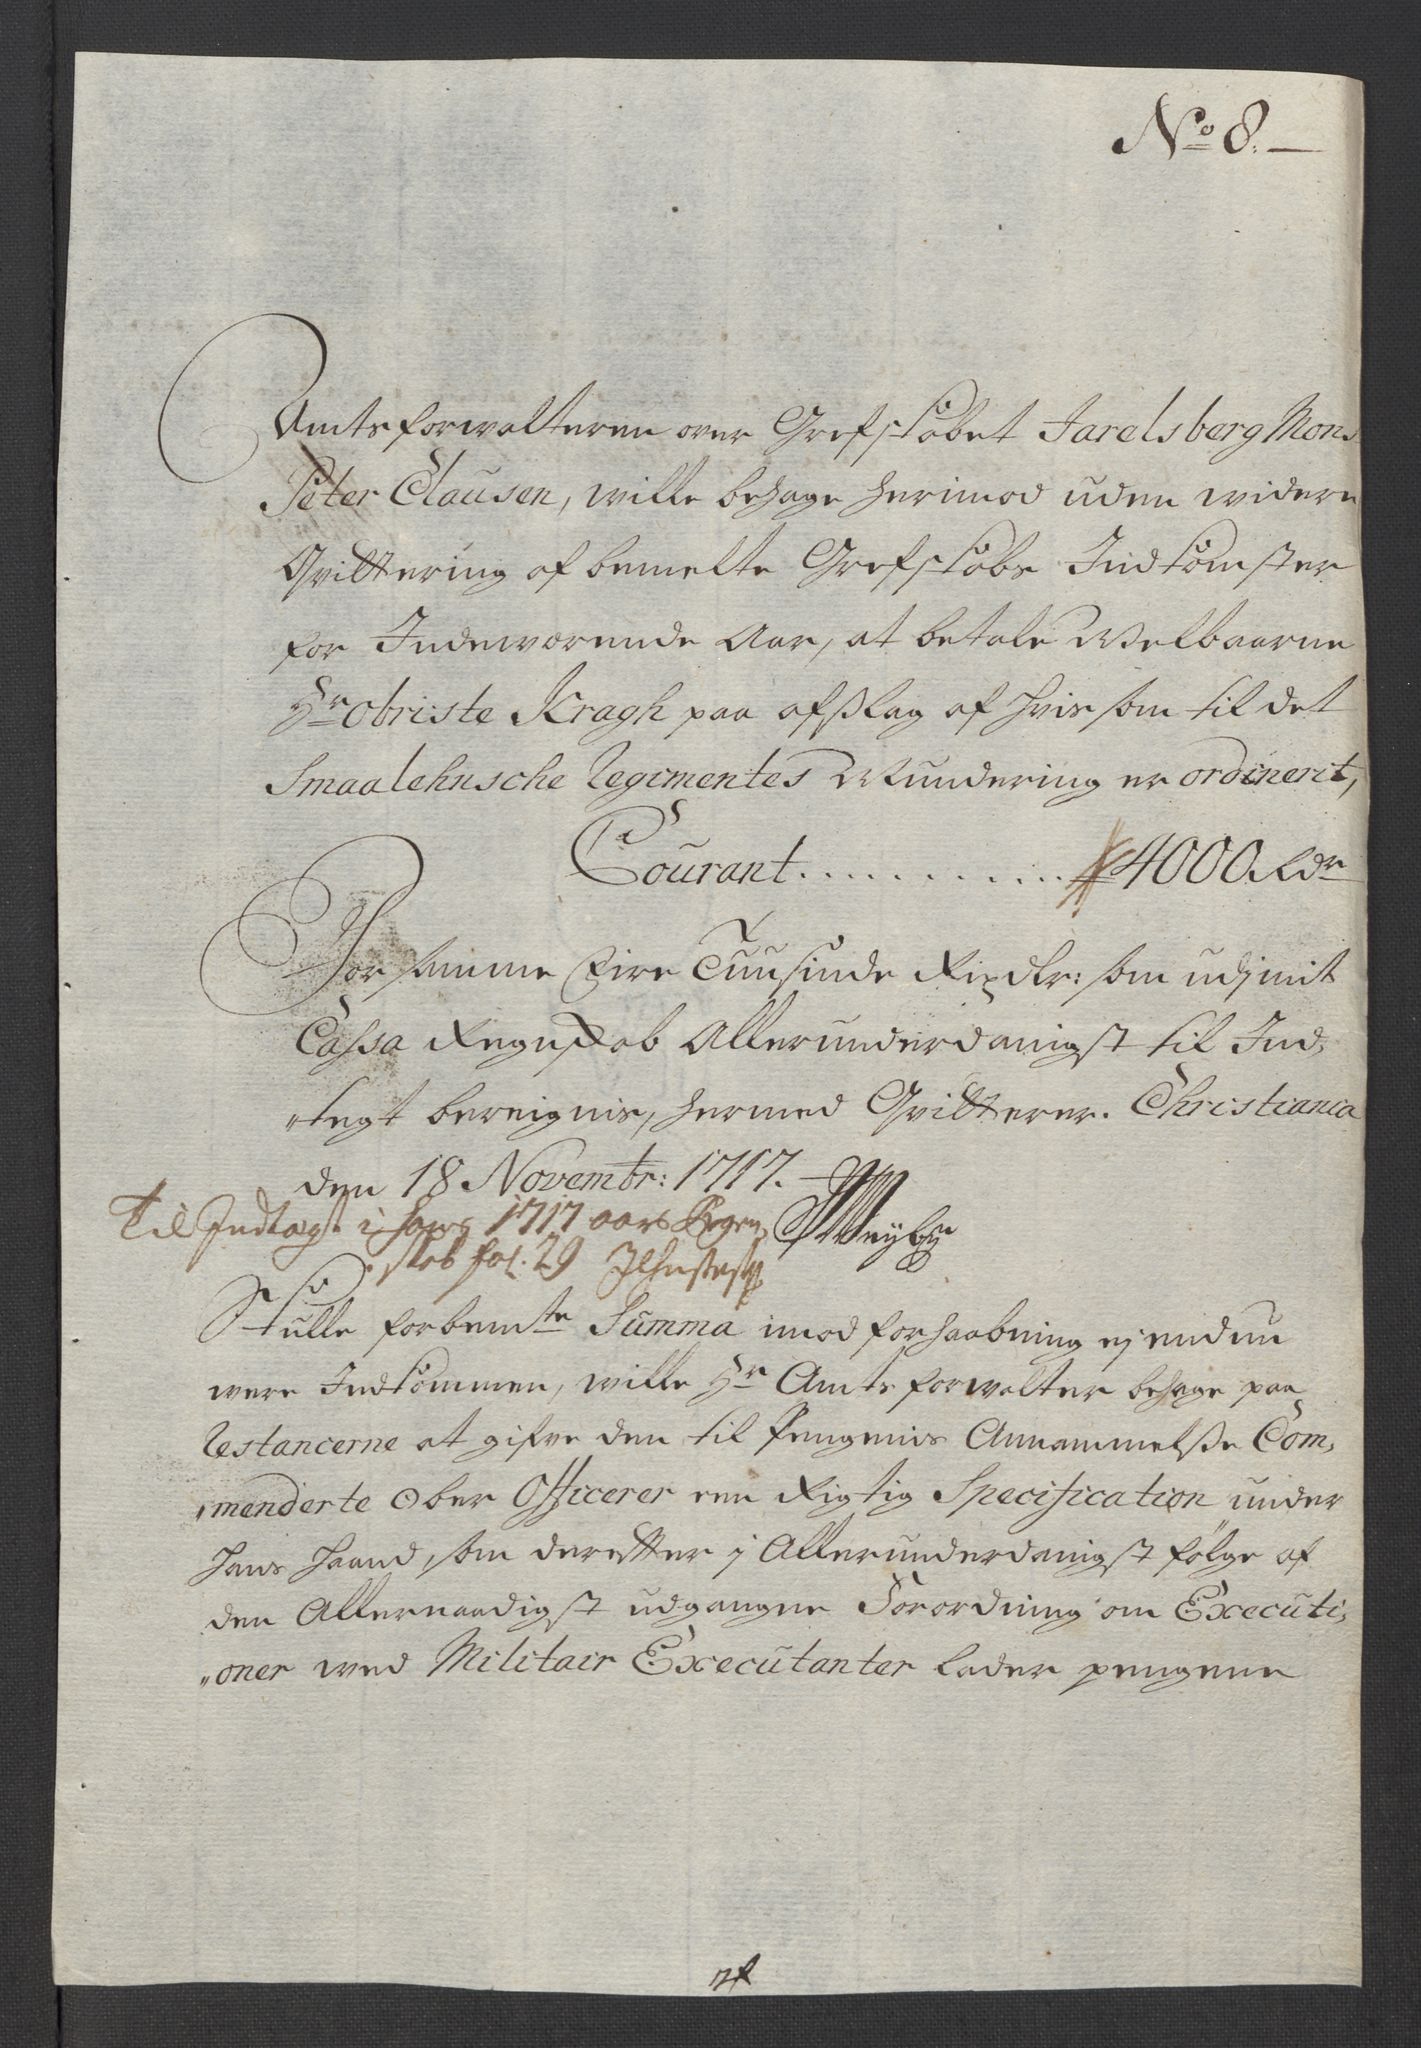 No 8.
Amtsforwalteren over Grefskabet Jarelsberg Mons
Peter Clausen, wille behage herimod uden widere
Qvittering af bemelte Grefskabs Indkomster
for Indeworende Aar, at betale Welbaarne
Hr Obriste Kragh paa afslag af hvis som til det
Smaalehnsche Regimentes Mundering er ordinerit,
Courant . . . . . . . . . . . 4000 Rdr
For samme Fire Tuusinde Rixdlr: som udj mit
Cassa Regnskab Allerunderdanigst til Ind,
„tegt bereignis, hermed Qvitterer. Christiania
den 18 Novembr: 1717.
Til Indtægt i hans 1717 aars Regen,
skab fol. 29
Skulle forbemte Summa imod forhaabning ej endnu
were Indkommen, wille Hr Amtsforwalter behage paa
Restancerne at gifve den til Pengenis Annammelsse Com,
„menderte Ober Officerer een Rigtig Specification under
hans haand, som derefter j Allerunderdanigst følge af
den Allernaadigst udgangne Forordning om Executi,
„oner wed Militair Executanter lader pengene